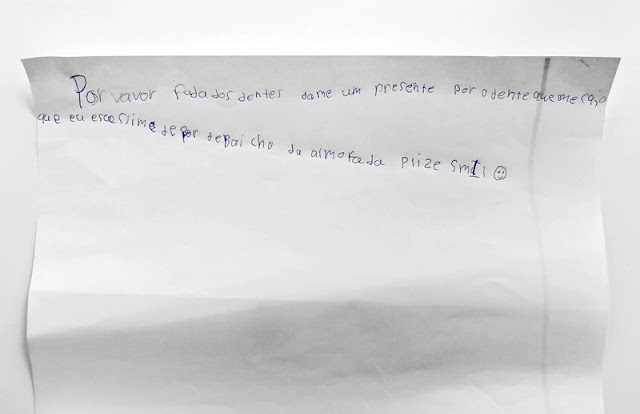 Por vavor fada dos dentes dame um presente por o dente que me caio
que eu esceslime de por debaicho da almofada plize smil